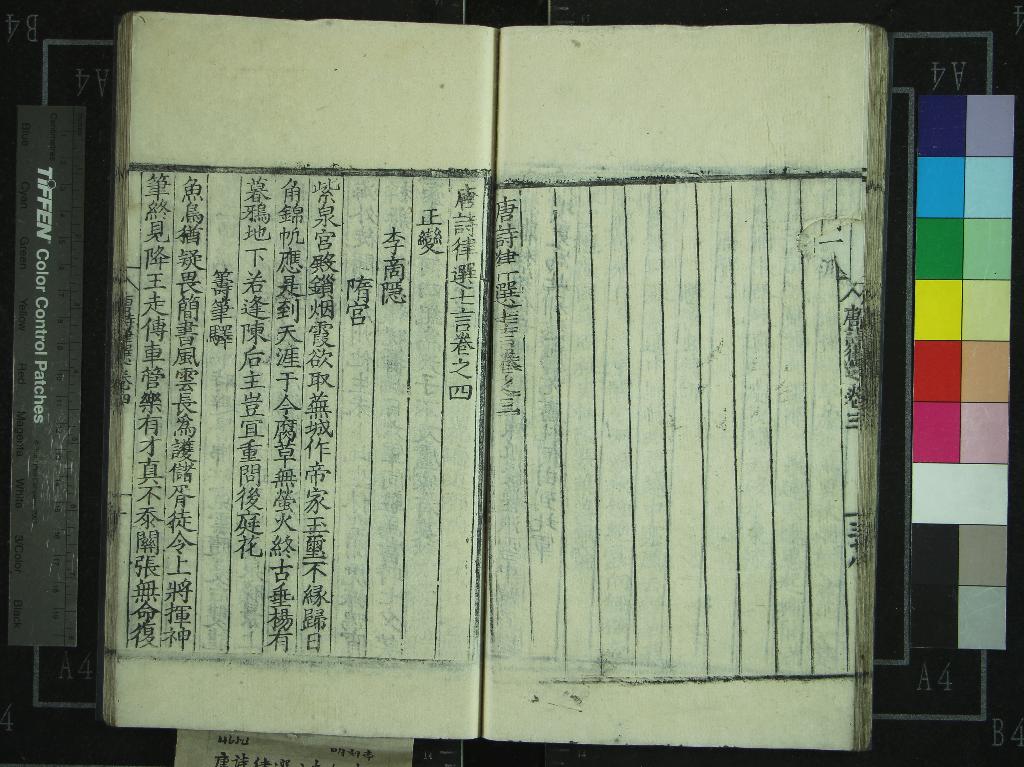 唐詩律選七言卷之三
唐詩律選七言卷之四
正變
李商隱
隋宮
紫泉宮殿鎖烟霞欲取蕪城作帝家玉璽不緣歸日
角錦帆應是到天涯于今腐草無螢火終古垂楊有
暮鴉地下若逢陳后主豈宜重問後庭花
籌筆驛
魚鳥猶疑畏簡書風雲長爲護儲胥徒令上將揮神
筆終見降王走傳車管樂有才真不忝關張無命復
TIFFEN Color Control Patches
Blue Cyan Green Yellow Red Magenta White 3/Color Black
A4
A4
A4
A4
B4
B4